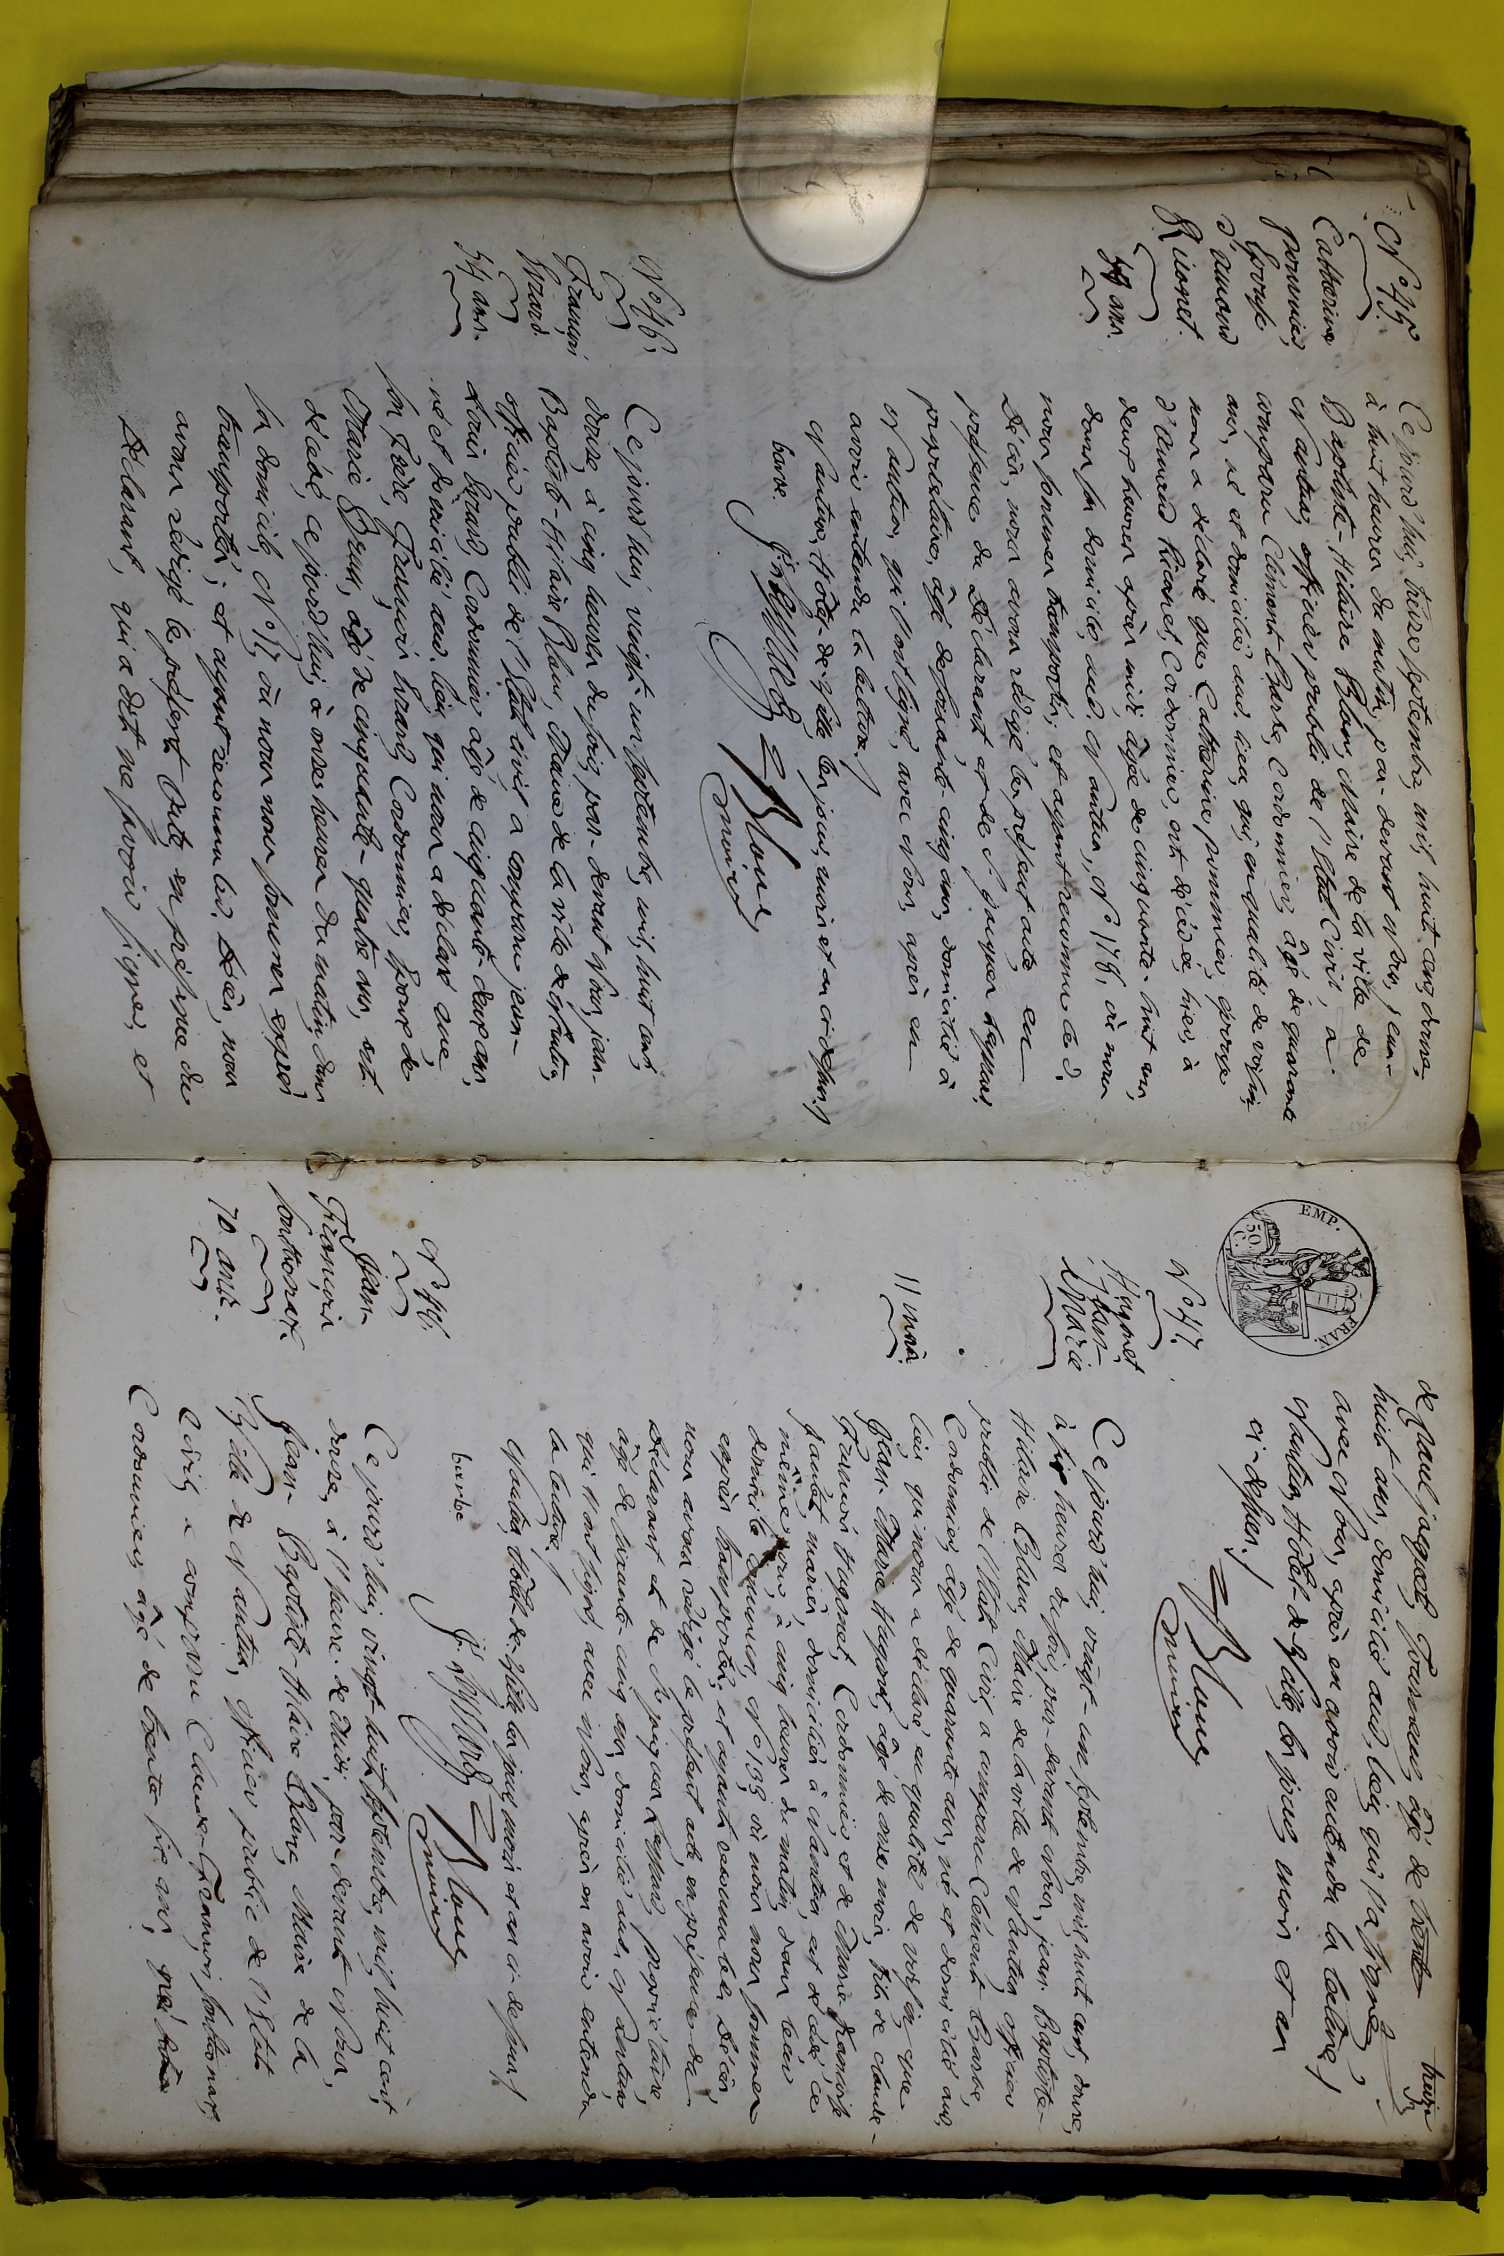 N.° 45.
Catherine
pommier,
épouse
d'amand
Ricanet.
58 ans.
Ce jourd'hui, treize septembre, mil, huit cent, douze,
à huit heures du matin, par-devant Nous, jean-
Baptiste-Hilaire Blanc, Maire de la ville de
Nantua, officier public de l'État Civil, a
comparu Clément Barbe, Cordonnier, âgé de quarante
ans, né et domicilié aud. lieu, qui, en qualité de voisin,
nous a déclaré que Catherine pommier, épouse
d'amand Ricanet, Cordonnier, est décédée, hier, à
deux heures après midi, âgée de cinquante-huit ans,
dans son domicile, aud. Nantua, N.° 178, où nous
nous sommes transporté; et ayant reconnu led.
Décès, nous avons rédigé le présent acte, en
présence du Déclarant et de S.r jacques
propriétaire, âgé de soixante-cinq ans, domicilié à
Nantua, qui l'ont signé, avec Nous, après en
avoir entendu la lecture./
Nantua, Hôtel-de-Ville, les jour, mois et an ci-dessus./
barbe. Blanc,
maire
N.° 46.
François
Evrard.
54 ans.
Ce jourd'hui, vingt-un septembre, mil, huit cent,
douze, à cinq heures du soir, par-devant Nous, jean-
Baptiste-Hilaire Blanc, Maire de la ville de Nantua,
officier public de l'État civil, a comparu jean-
Louis Evrard, Cordonnier, âgé de cinquante-deux ans,
né et domicilié aud. lieu, qui nous a déclaré que
son frère, François Evrard, Cordonnier, Epoux de
Marie Brun, âgé de cinquante-quatre ans, est
décédé, ce jourd'hui, à onze heures du matin, dans
son domicile, N.° 17, où nous nous sommes exprès
transporté; et ayant reconnu led. Décès, nous
avons rédigé le présent Acte, en présence du
Déclarant, qui a dit ne savoir signer, et
de Paul jacquet, Tourneur, âgé de trente-
huit ans, domicilié aud. lieu, qui l'a signé,
avec Nous, après en avoir entendu la lecture./
Nantua, Hôtel-de-Ville, les jour, mois et an
ci-dessus./
Blanc,
maire
EMP. FRAN.
50 C.
N.° 47.
Hugonet,
Jean-
Marie
11 mois.
Ce jourd'hui, vingt-un septembre, mil, huit cent, douze,
à six heures du soir, par-devant Nous, jean-Baptiste-
Hilaire Blanc, Maire de la ville de Nantua, officier
public de l'État Civil, a comparu Clément Barbe,
Cordonnier, âgé de quarante ans, né et domicilié aud.
lieu, qui nous a déclaré, en qualité de voisin, que
Jean-Marie Hugonet, âgé de onze mois, fils de claude-
François Hugonet, Cordonnier, et de Marie-françoise
mariés, domiciliés à Nantua, est décédé, ce
même jour, à cinq heures du matin, dans leur
domicile commun, N.° 133, où nous nous sommes
exprès transporté; et ayant reconnu led. Décès,
nous avons rédigé le présent acte, en présence du
Déclarant et de S.r jacques propriétaire,
âgé de soixante-cinq ans, domicilié aud. Nantua,
qui l'ont signé, avec Nous, après en avoir entendu
la lecture./
Nantua, Hôtel-de-Ville, les jour, mois et an ci-dessus./
barbe Blanc,
maire
N.° 48.
Jean-
François
Sonthonax.
70 ans.
Ce jourd'hui, vingt-huit septembre, mil, huit cent,
douze, à l'heure de Midi, par-devant Nous,
Jean-Baptiste-Hilaire Blanc, Maire de la
Ville de Nantua, officier public de l'État
Civil, a comparu Claude-François Sonthonax,
Cordonnier, âgé de trente-six ans,